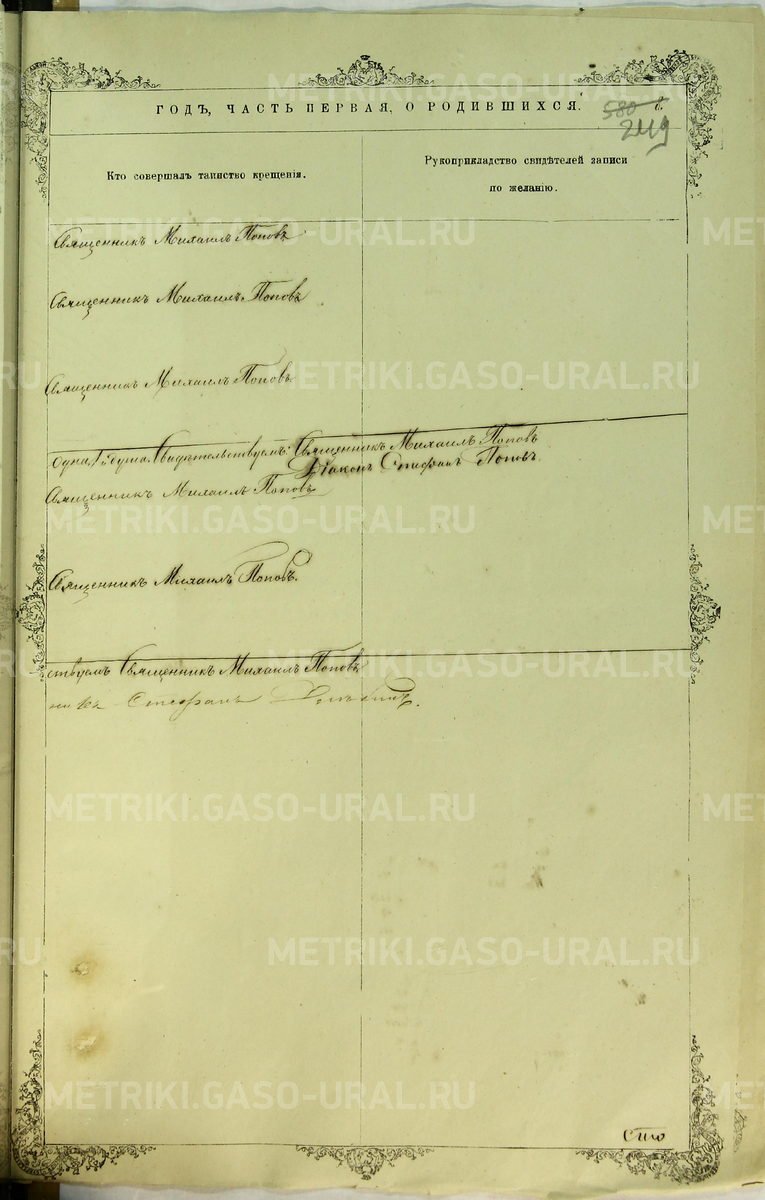 ГОДЪ, ЧАСТЬ ПЕРВАЯ, О РОДИВШИХСЯ.
580
249
Кто совершалъ таинство крещенія.
Рукоприкладство свидѣтелей записи
по желанію.
Священникъ Михаилъ Поповъ
Священникъ Михаилъ Поповъ
Священникъ Михаилъ Поповъ
одна, душа. Свидѣтельствуемъ: Священникъ Михаилъ Поповъ
Діаконъ Стефанъ Поповъ.
Священникъ Михаилъ Поповъ
Священникъ Михаилъ Поповъ.
ствуемъ Священникъ Михаилъ Поповъ
Стефанъ
METRIKI.GASO-URAL.RU